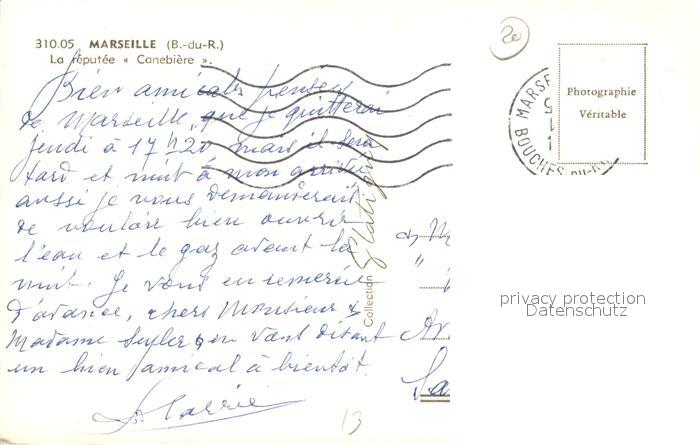 310.05 MARSEILLE (B.-du-R.)
La réputée « Canebière ».
Bien amicales pensées
de Marseille, que je quitterai
jeudi à 17h20 mais il sera
tard et nuit à mon arrivée
aussi je vous demanderais
de vouloir bien ouvrir
l'eau et le gaz avant la
nuit. Je vous en remercie
d'avance, chers Monsieur &
Madame en vous disant
un bien amical à bientôt.
Collection
20
MARSE
BOUCHES-DU-RH
Photographie
Véritable
privacy protection
Datenschutz
13